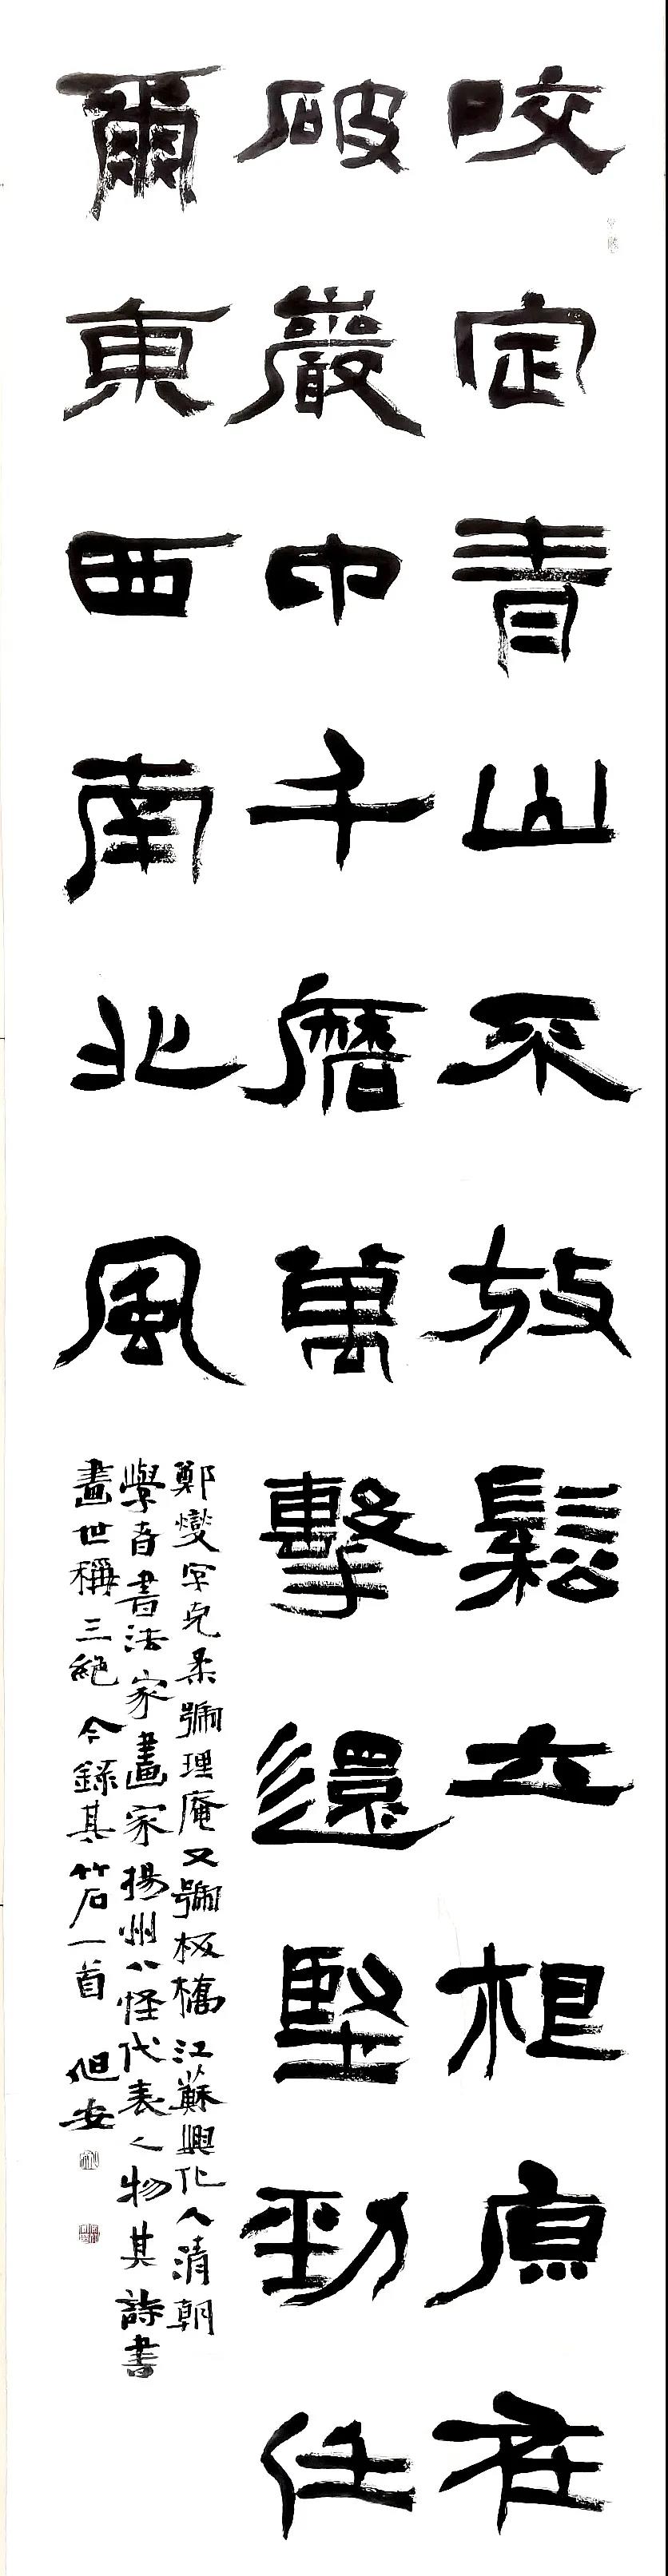 咬定青山不放鬆立根原在
破巖中千磨萬擊還堅勁任
爾東西南北風
鄭燮字克柔號理庵又號板橋江蘇興化人清朝
學者書法家畫家揚州八怪代表人物其詩書
畫世稱三絶今錄其竹石一首 旭安